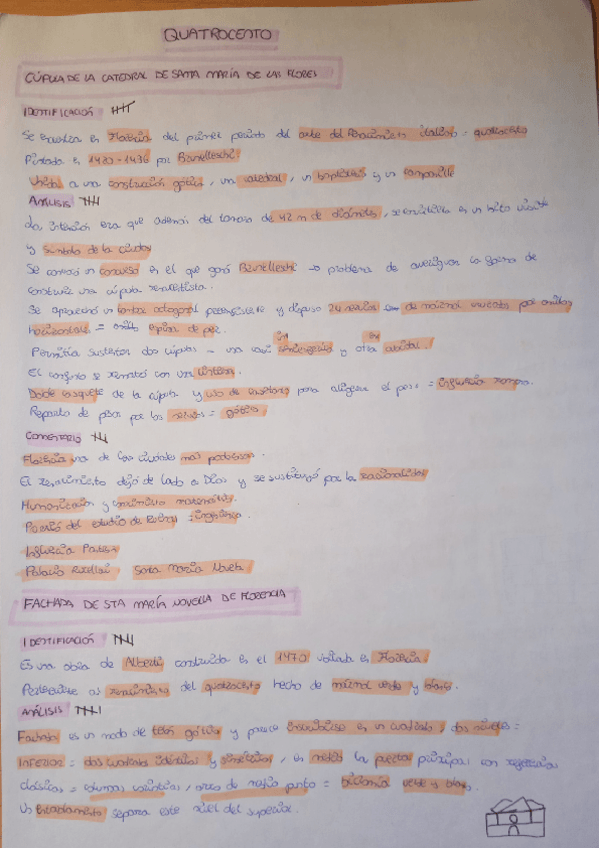 QUATROCENTO
CÚPULA DE LA CATEDRAL DE SANTA MARÍA DE LAS FLORES
IDENTIFICACIÓN
Se encuentra en Florencia del primer periodo del arte del Renacimiento italiano = quatrocento
Pintada en 1420-1436 por Brunelleschi
Unida a una construcción gótica, una catedral, un baptisterio y un campanille
ANÁLISIS
La intención era que además del tamaño de 42 m de diámetro, se convirtiera en un hito visible
y símbolo de la ciudad
Se convocó un concurso en el que ganó Brunelleschi → problema de averiguar la forma de
construir una cúpula renacentista.
Se aprovechó un tambor octogonal preexistente y dispuso 24 nervios de mármol unidos por anillos
horizontales = anillo espina de pez.
Permitía sustentar dos cúpulas - una casi semiesférica y otra apuntada.
int ext
El conjunto se remató con una linterna.
Doble casquete de la cúpula y uso de para aligerar el peso = influencia romana.
Reparto de pesos por los nervios = gótico.
COMENTARIO
Florencia una de las ciudades más poderosas.
El renacimiento dejó de lado a Dios y se sustituyó por la racionalidad
Humanización y matemático.
Pasión del estudio de Roma = ingeniería
Influencia Panteón
Palacio Rucellai Santa Maria Novella
FACHADA DE STA MARÍA NOVELLA DE FLORENCIA
IDENTIFICACIÓN
Es una obra de Alberti construida en el 1470 situada en Florencia.
Pertenece al renacimiento del quatrocento hecho de mármol verde y blanco.
ANÁLISIS
Fachada es un modo de telón gótico y parece inscribirse en un cuadrado, dos niveles =
INFERIOR = dos cuadrados idénticos y simétricos, en medio la puerta principal con reminiscencias
clásicas = columnas corintias, arco de medio punto = bicromía verde y blanco.
Un entablamento separa este nivel del superior.